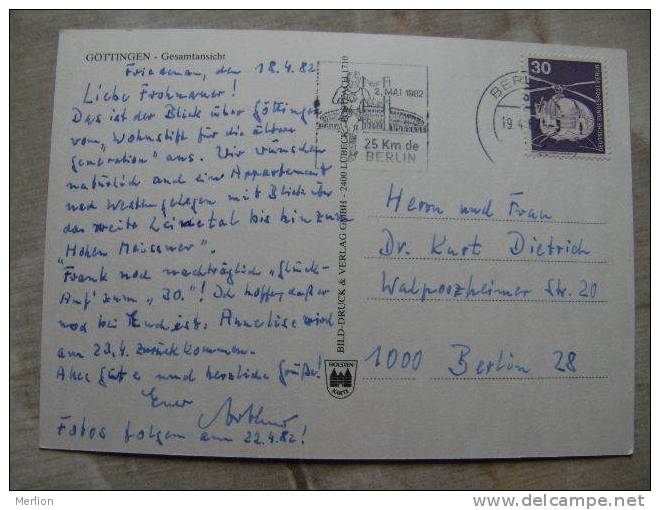 GÖTTINGEN - Gesamtansicht
Friedenau, den 18.4.82
Liebe Frohnauer!
Das ist der Blick über Göttingen
vom „Wohnstift für die ältere
Generation" aus. Wir wünschen
natürlich auch ein Appartement
nach Westen gelegen mit Blick über
das weite Leinetal bis hin zum
"Hohen Meissner".
Frank noch nachträglich „Glück-
Auf" zum „30."! Ich hoffe, daß er
noch bei Euch ist. Annelise wird
am 23.4. zurückkommen.
Alles Gute und herzliche Grüße!
Euer Arthur
Fotos folgen am 22.4.82!
BILD-DRUCK & VERLAG GMBH - 2400 LÜBECK - 1710
HOLSTEN
KARTE
2. MAI 1982
25 Km de
BERLIN
BERL
19.4.
30
DEUTSCHE BUNDESPOST BERLIN
Herrn und Frau
Dr. Kurt Dietrich
Walporzheimer Str. 20
1000 Berlin 28
Merlion
www.delcampe.net